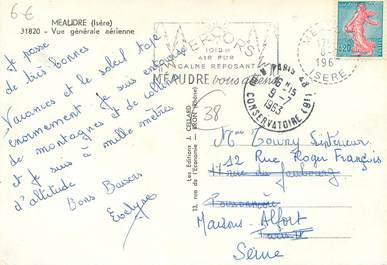 6€
MEAUDRE (Isère)
31820 - Vue générale aérienne
VERCORS
1012 m
AIR PUR
CALME REPOSANT
MÉAUDRE vous attend
ISERE
196
0,20
PARIS 48
16 H 15
9-7
1963
CONSERVATOIRE (81)
38
Je passe
de très bonnes
vacances et le soleil tape
énormement je suis entourée
de montagnes et de collines
et je suis à mille mètres
d'altitude
Bons Baisers
Evelyne
Les Editions J. CELLARD
13, rue de l'Economie - BRON (Rhône)
Mme Tourry Supérieur
12 Rue Roger François
11 rue du Faubourg
Poissonnière
Maisons-Alfort
Paris
Seine